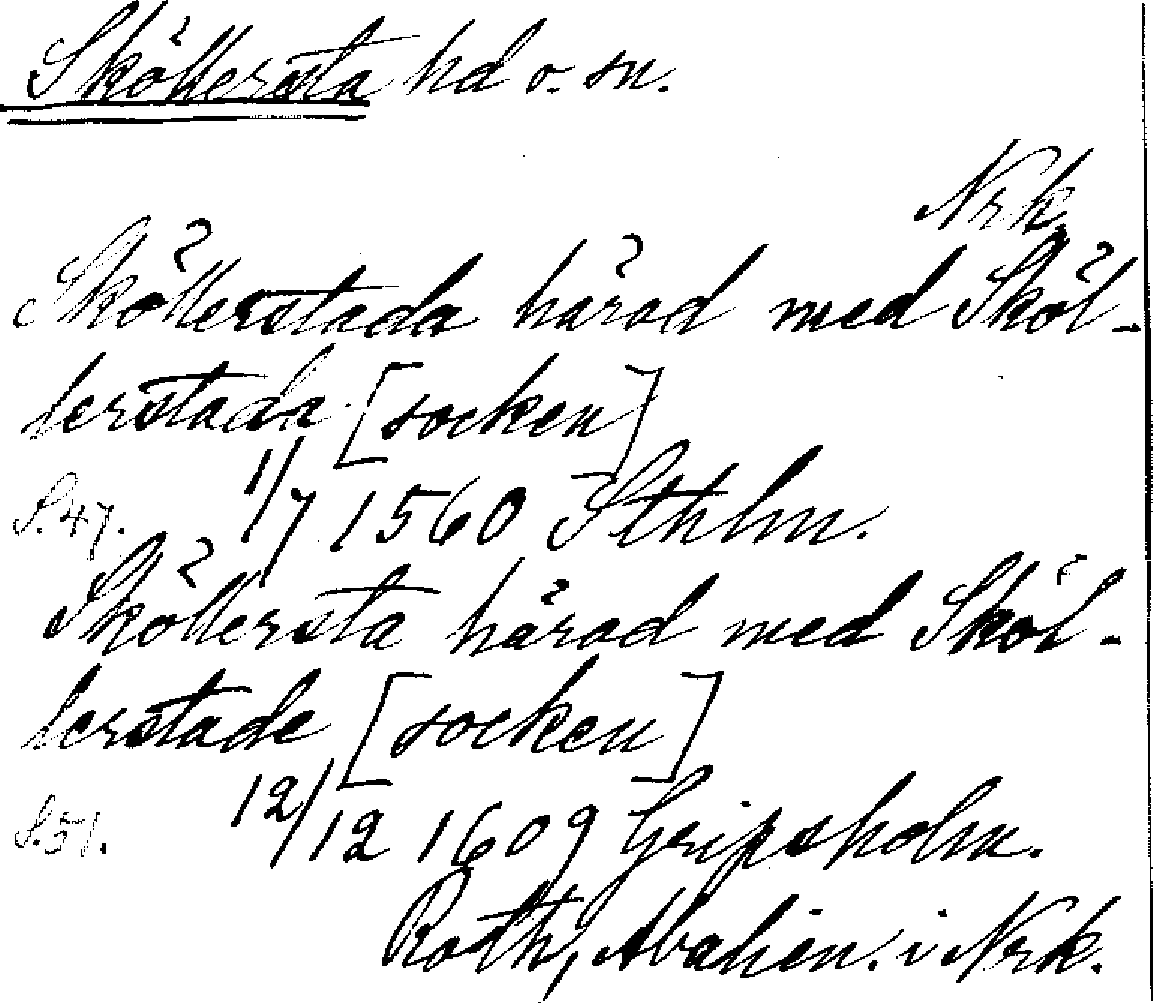 Sköllersta hd o. sn.
Nrk
Sköllerstada härad med Sköl-
lerstada [socken]
S. 47. 1/7 1560 Sthlm.
Sköllersta härad med Sköl-
lerstade [socken]
S. 51. 12/12 1609 Gripsholm.
Roth, Abalien. i Nrk.